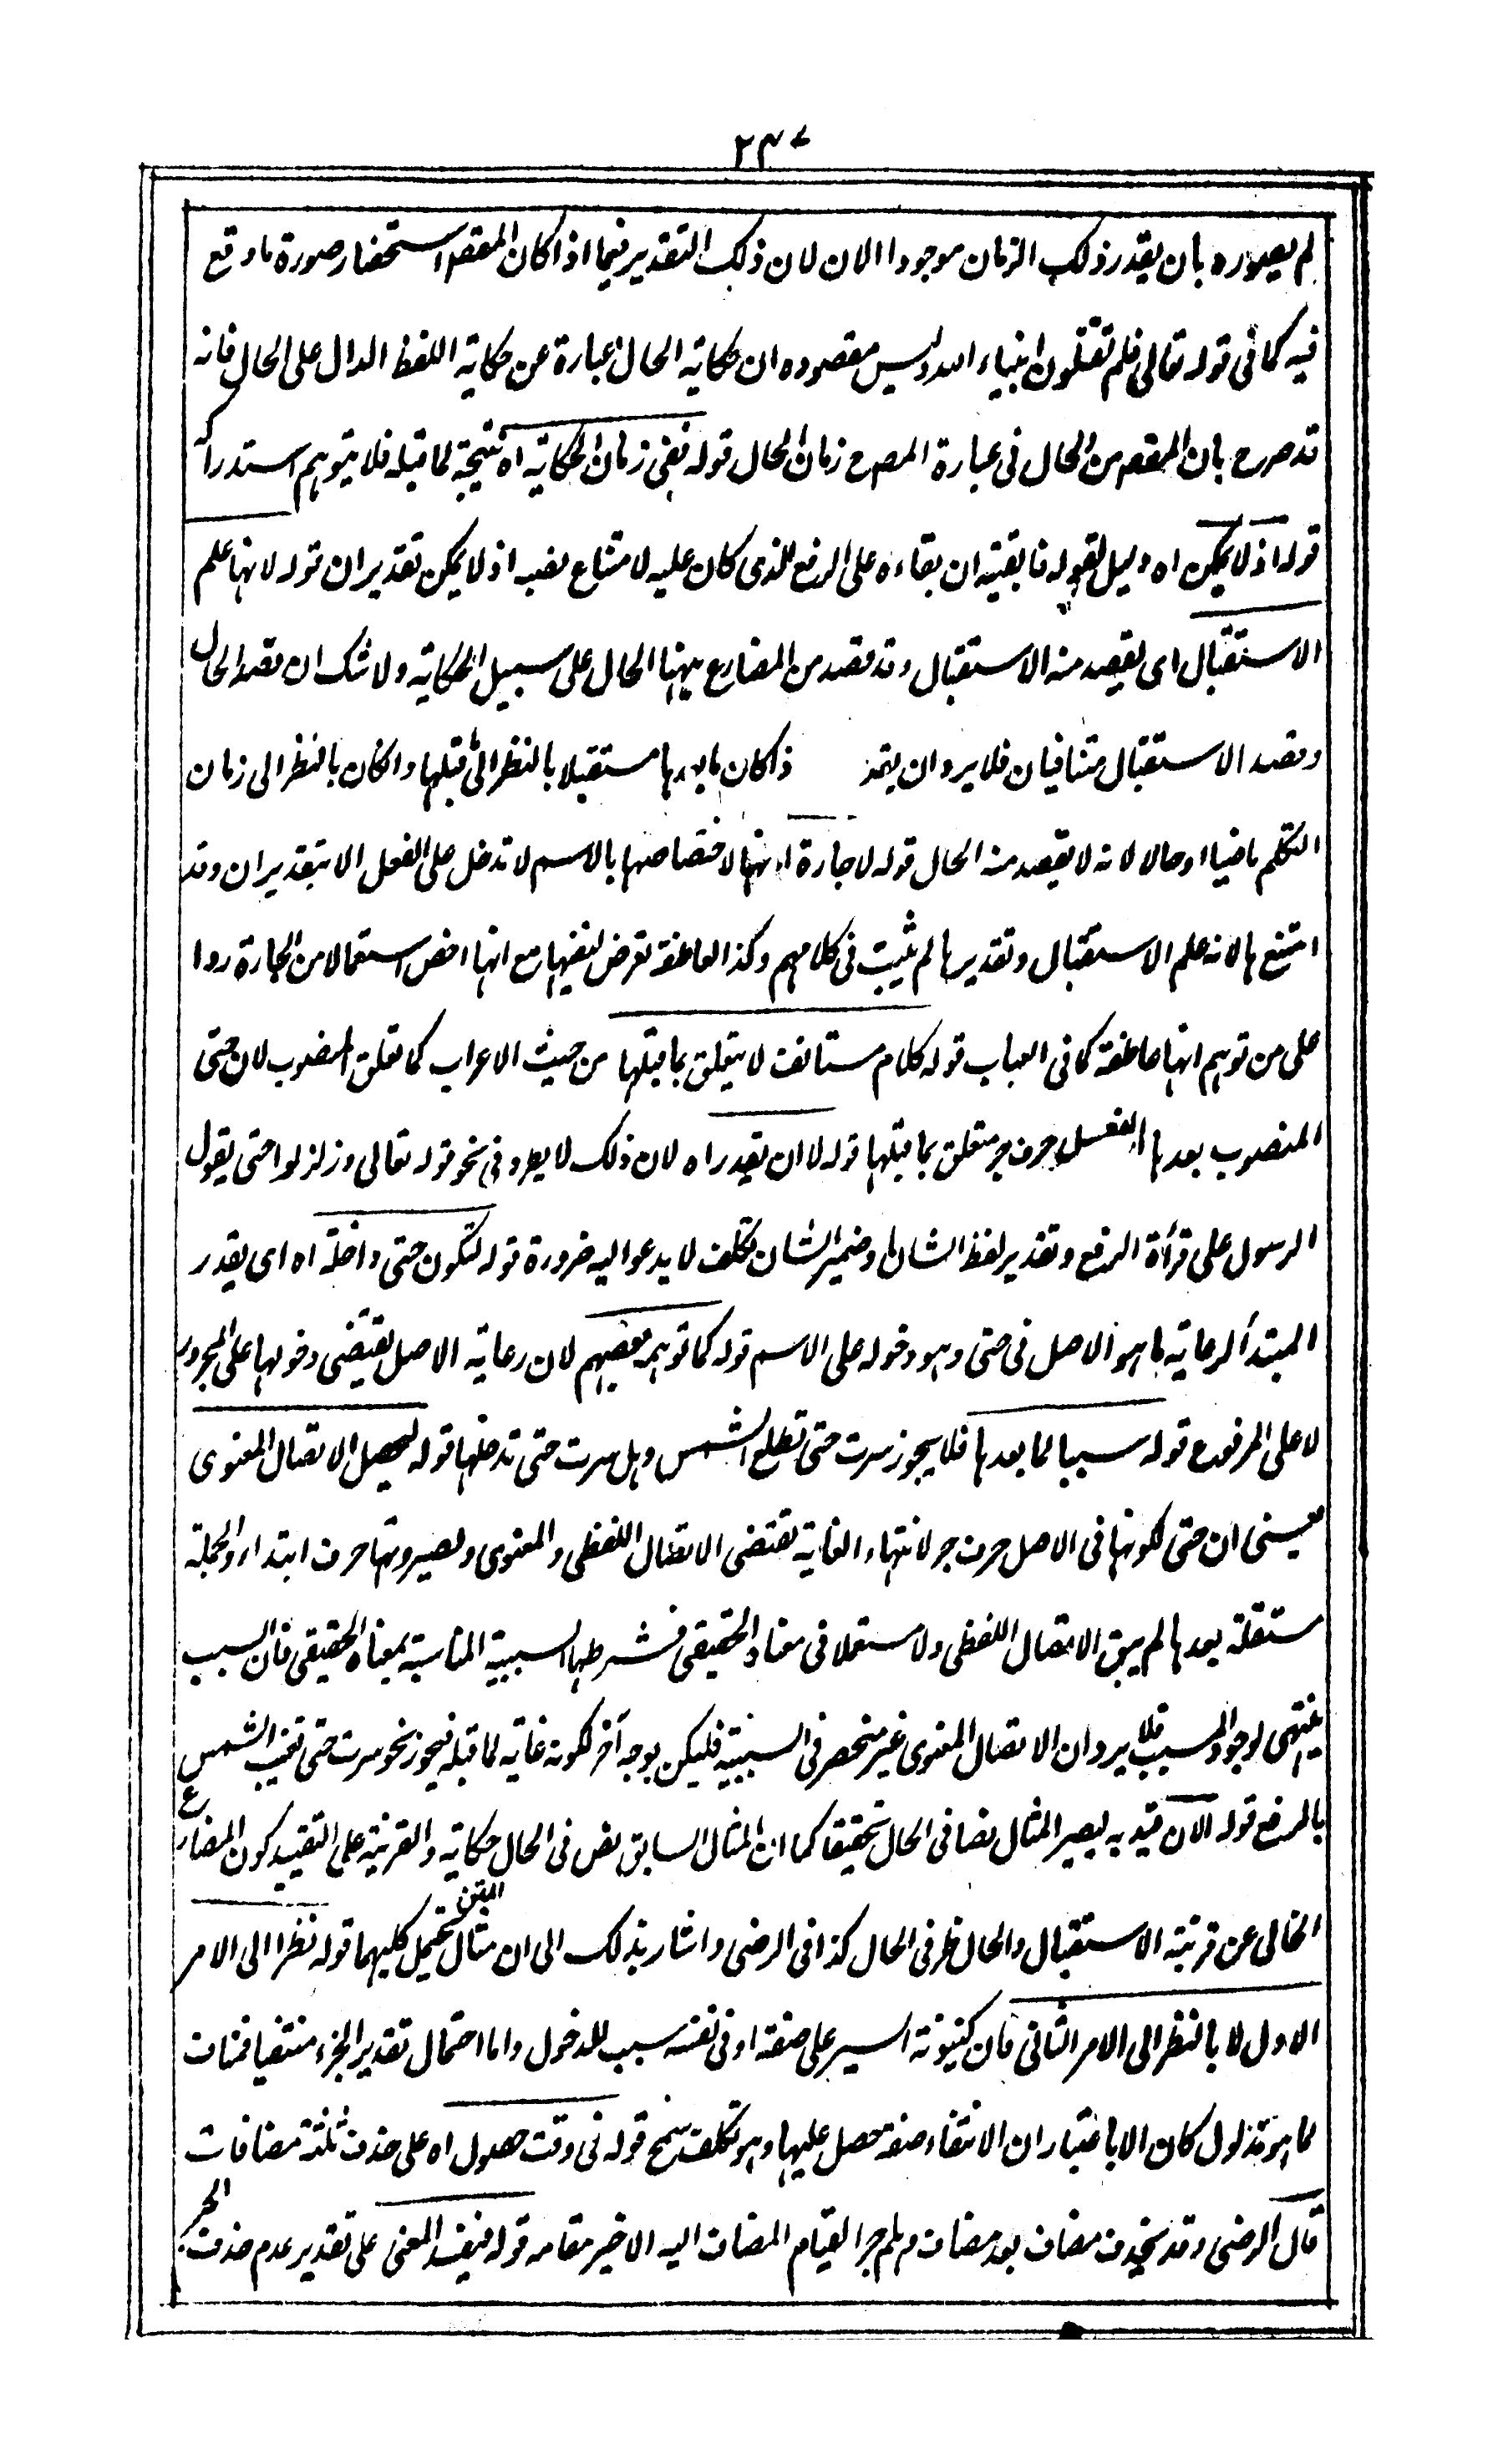 ٢٣٧
لم يصوره بان يقدر ذلك الزمان موجودا الان لان ذلك التقدير فيما اذا كان المقصم استحضار صورة ما وقع
فيه كما فى قوله تعالى فلم تقتلون انبياء الله وليس مقصوده ان حكاية الحال عبارة عن حكاية اللفظ الدال على الحال فانه
قد صرح بان المقصم من الحال فى عبارة المصرح زمان الحال قوله ففى زمان الحكاية اه نتيجة لما قبله فلا يتوهم استدراكه
قوله اذ لا يمكن اه دليل لقوله فابقيته ان بقاءه على الرفع للذى كان عليه لامتناع نصبه اذ لا يمكن تقدير ان قوله لانها علم
الاستقبال اى يقصد منه الاستقبال وقد قصد من المضارع ههنا الحال على سبيل الحكاية ولا شك ان قصد الحال
وقصد الاستقبال متنافيان فلا يرد ان ذا كان ما بعدها مستقبلا بالنظر الى قبلها وا نكان بالنظر الى زمان
التكلم ماضيا او حالا لانه لا يقصد منه الحال قوله لا جارة لانها لاختصاصها بالاسم لا تدخل على الفعل الا بتقدير ان وقد
امتنع ها لانه علم الاستقبال وتقديرها لم يثبت فى كلامهم وكذا العاطفة تعرض لنفيها مع انها اخص استعمالا من الجارة ردا
على من توهم انها عاطفة كما فى العباب قوله كلام مستانف لا يتعلق بما قبلها من حيث الاعراب كما تعلق المنصوب لان حتى
المنصوب بعدها الفعل حرف جر متعلق بما قبلها قوله لا ان يقدر اه لان ذلك لا يطرد فى نحو قوله تعالى وزلزلوا حتى يقول
الرسول على قرأة الرفع وتقدير لفظ الشان او ضمير الشان تكلف لا يدعو اليه ضرورة قوله لتكون حتى داخلة اه اى يقدر
المبتدأ لرعاية ما هو الاصل فى حتى وهو دخوله على الاسم قوله كما توهمه بعضهم لان رعاية الاصل يقتضى دخولها على المجرور
لا على المرفوع قوله سببا لما بعدها فلا يجوز سرت حتى تطلع الشمس وهل سرت حتى تدخلها قوله ليحصل الاتصال المعنوى
يعنى ان حتى لكونها فى الاصل حرف جر لانتهاء الغاية تقتضى الاتصال اللفظى والمعنوى ولصيرورتها حرف ابتداء والجملة
مستقلة بعدها لم يبق الاتصال اللفظى ولا مستعملا فى معناه الحقيقى فشرطها السببية المناسبة لمعناه الحقيقى فان السبب
ينتهى لوجود المسبب فلا يرد ان الاتصال المعنوى غير منحصر فى السببية فليكن بوجه آخر لكونه غاية لما قبله فيجوز نحو سرت حتى تغيب الشمس
بالرفع قوله الان قيد به ليصير المثال نصا فى الحال تحقيقا كما ان المثال السابق نص فى الحال حكاية والقرينة على التقييد كون المضارع
الخالى عن قرينة الاستقبال والحال ظرفى الحال كذا فى الرضى واشار بذلك الى ان مثال المتن يحتمل كليهما قوله نظرا الى الامر
الاول لا بالنظر الى الامر الثانى فان كينونة السير على صفة او فى نفسه سبب للدخول واما احتمال تقدير الجزء منتفيا فمناف
لما هو مدلول كان الا باعتبار ان الانتفاء صفة حصل عليها وهو تكلف سمج قوله فى وقت حصول اه على حذف ثلثة مضافات
قال الرضى وقد يحذف مضاف بعد مضاف وهلم جرا لقيام المضاف اليه الاخير مقامه قوله فيفسد المعنى على تقدير عدم حذف الخبر